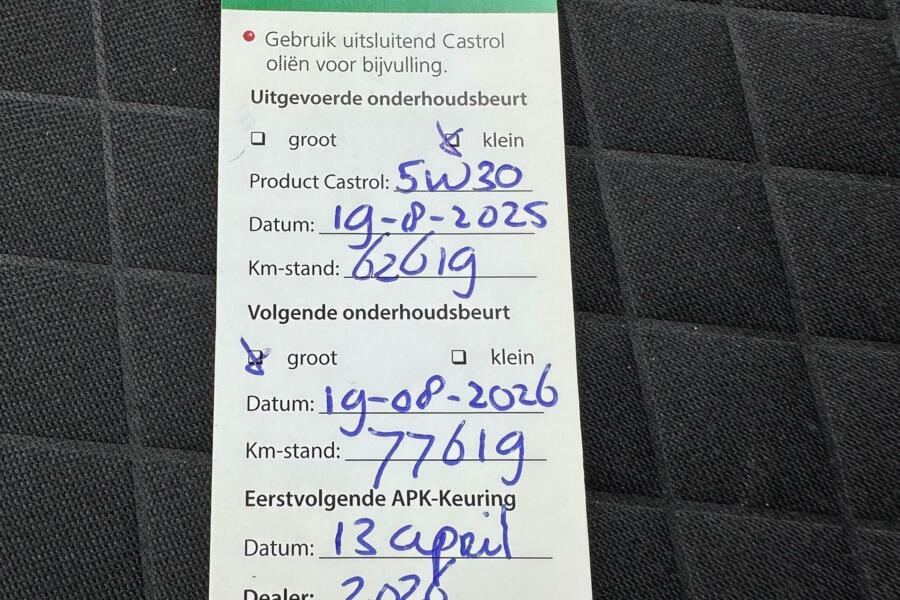 Gebruik uitsluitend Castrol
oliën voor bijvulling.
Uitgevoerde onderhoudsbeurt
groot klein
Product Castrol: 5W30
Datum: 19-8-2025
Km-stand: 62619
Volgende onderhoudsbeurt
groot klein
Datum: 19-08-2026
Km-stand: 77619
Eerstvolgende APK-Keuring
Datum: 13 april
Dealer: 2026